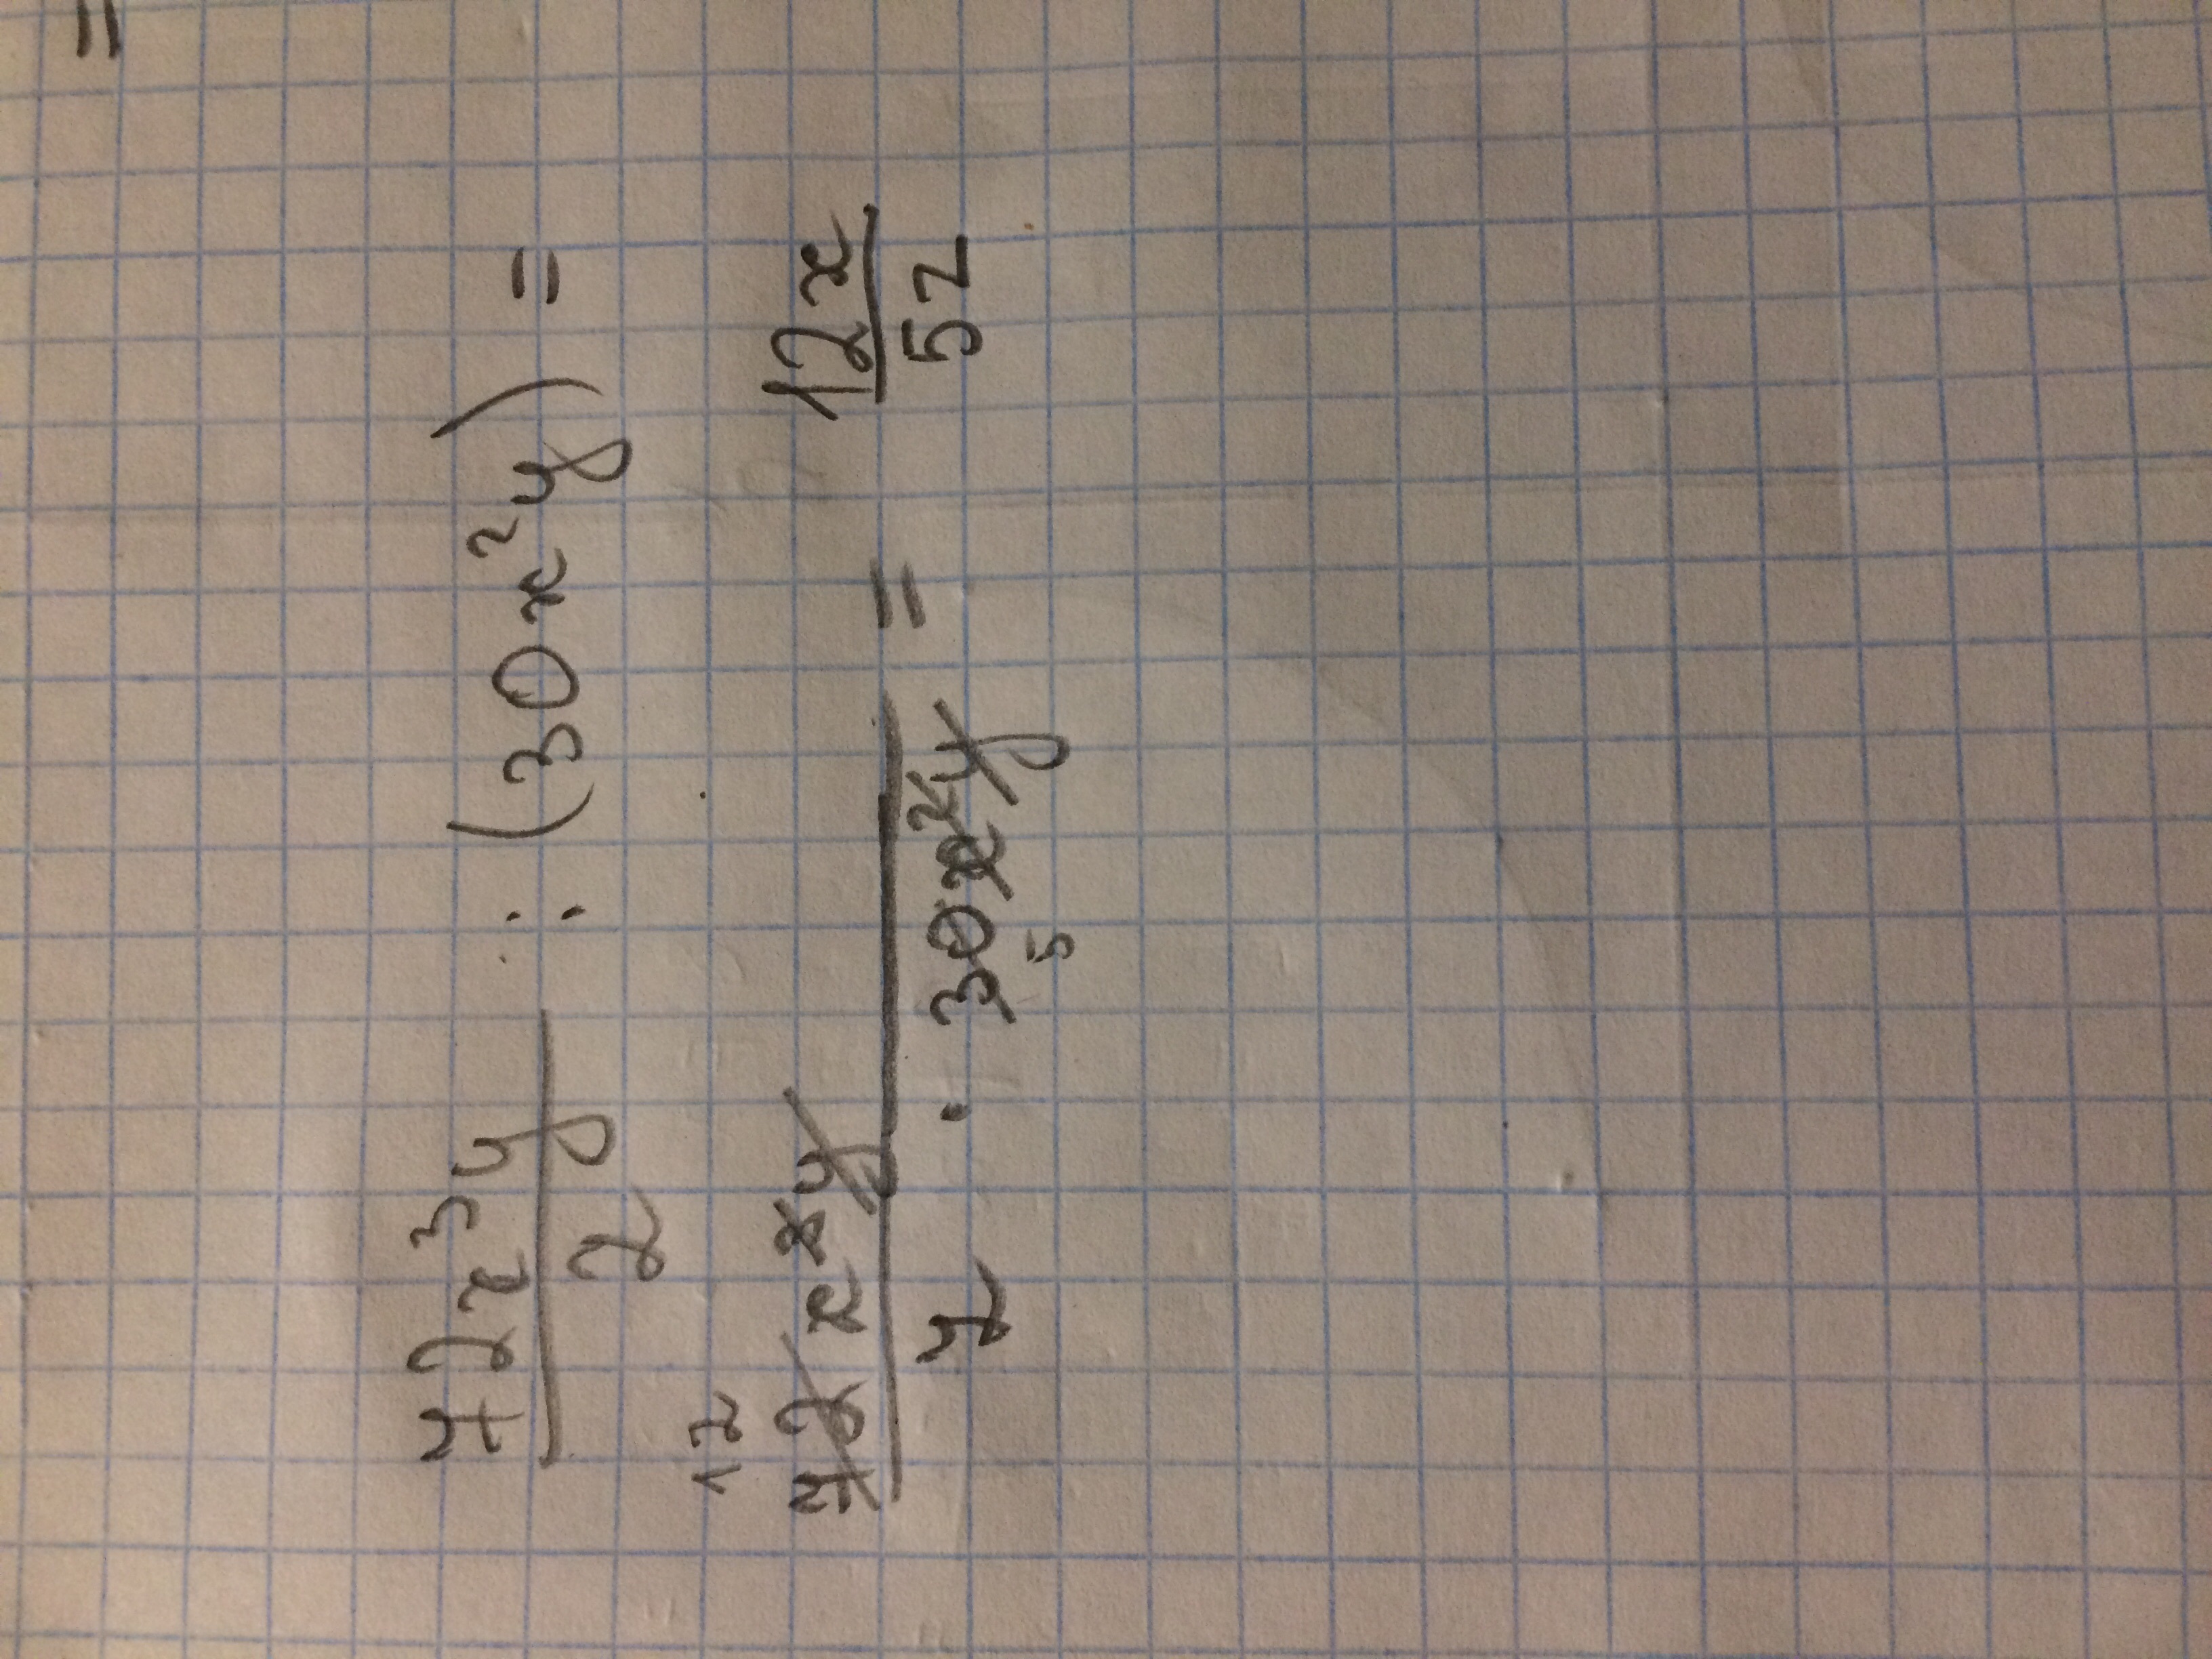 =
72x³y/z : (30x²y) =
12
72x³y / z · 30x²y = 12x/5z
5